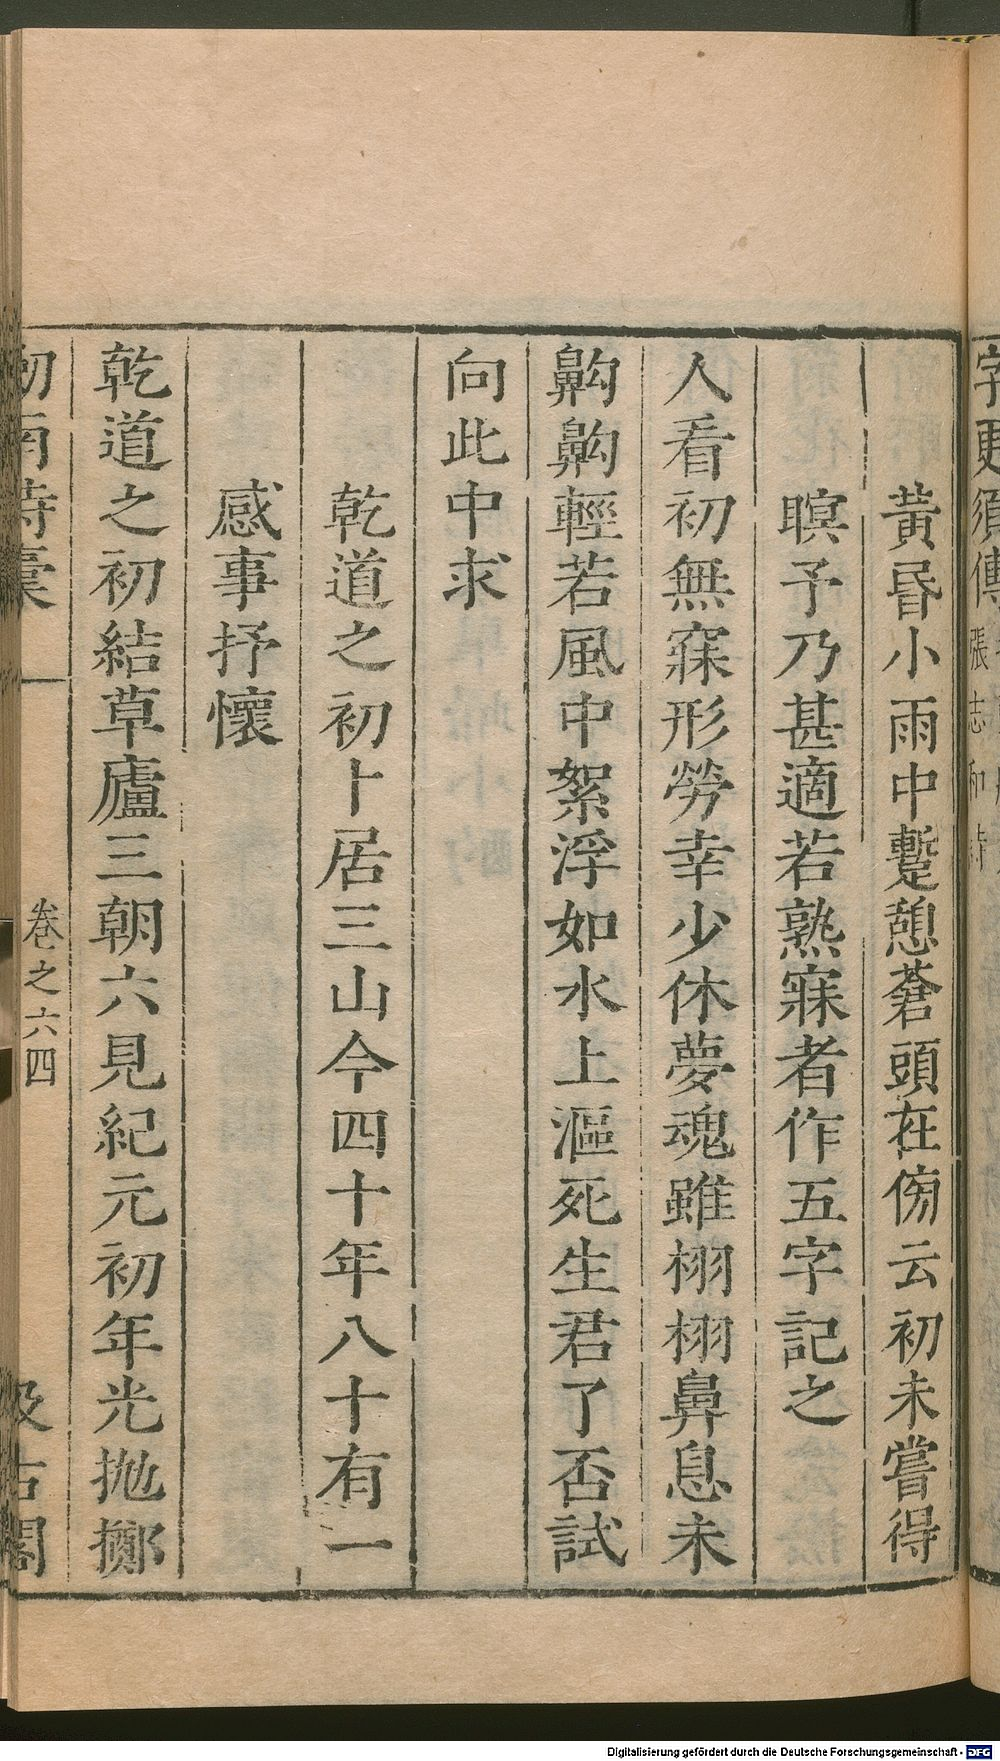 字更須傳 張志和詩
黄昬小雨中蹔憩蒼頭在傍云初未嘗得
瞑予乃甚適若熟寐者作五字記之
人看初無寐形勞幸少休夢魂雖栩栩鼻息未
齁齁輕若風中絮浮如水上漚死生君了否試
向此中求
乾道之初卜居三山今四十年八十有一
感事抒懷
乾道之初結草廬三朝六見紀元初年光抛擲
劒南詩稾 卷之六四 汲古閣
Digitalisierung gefördert durch die Deutsche Forschungsgemeinschaft - DFG